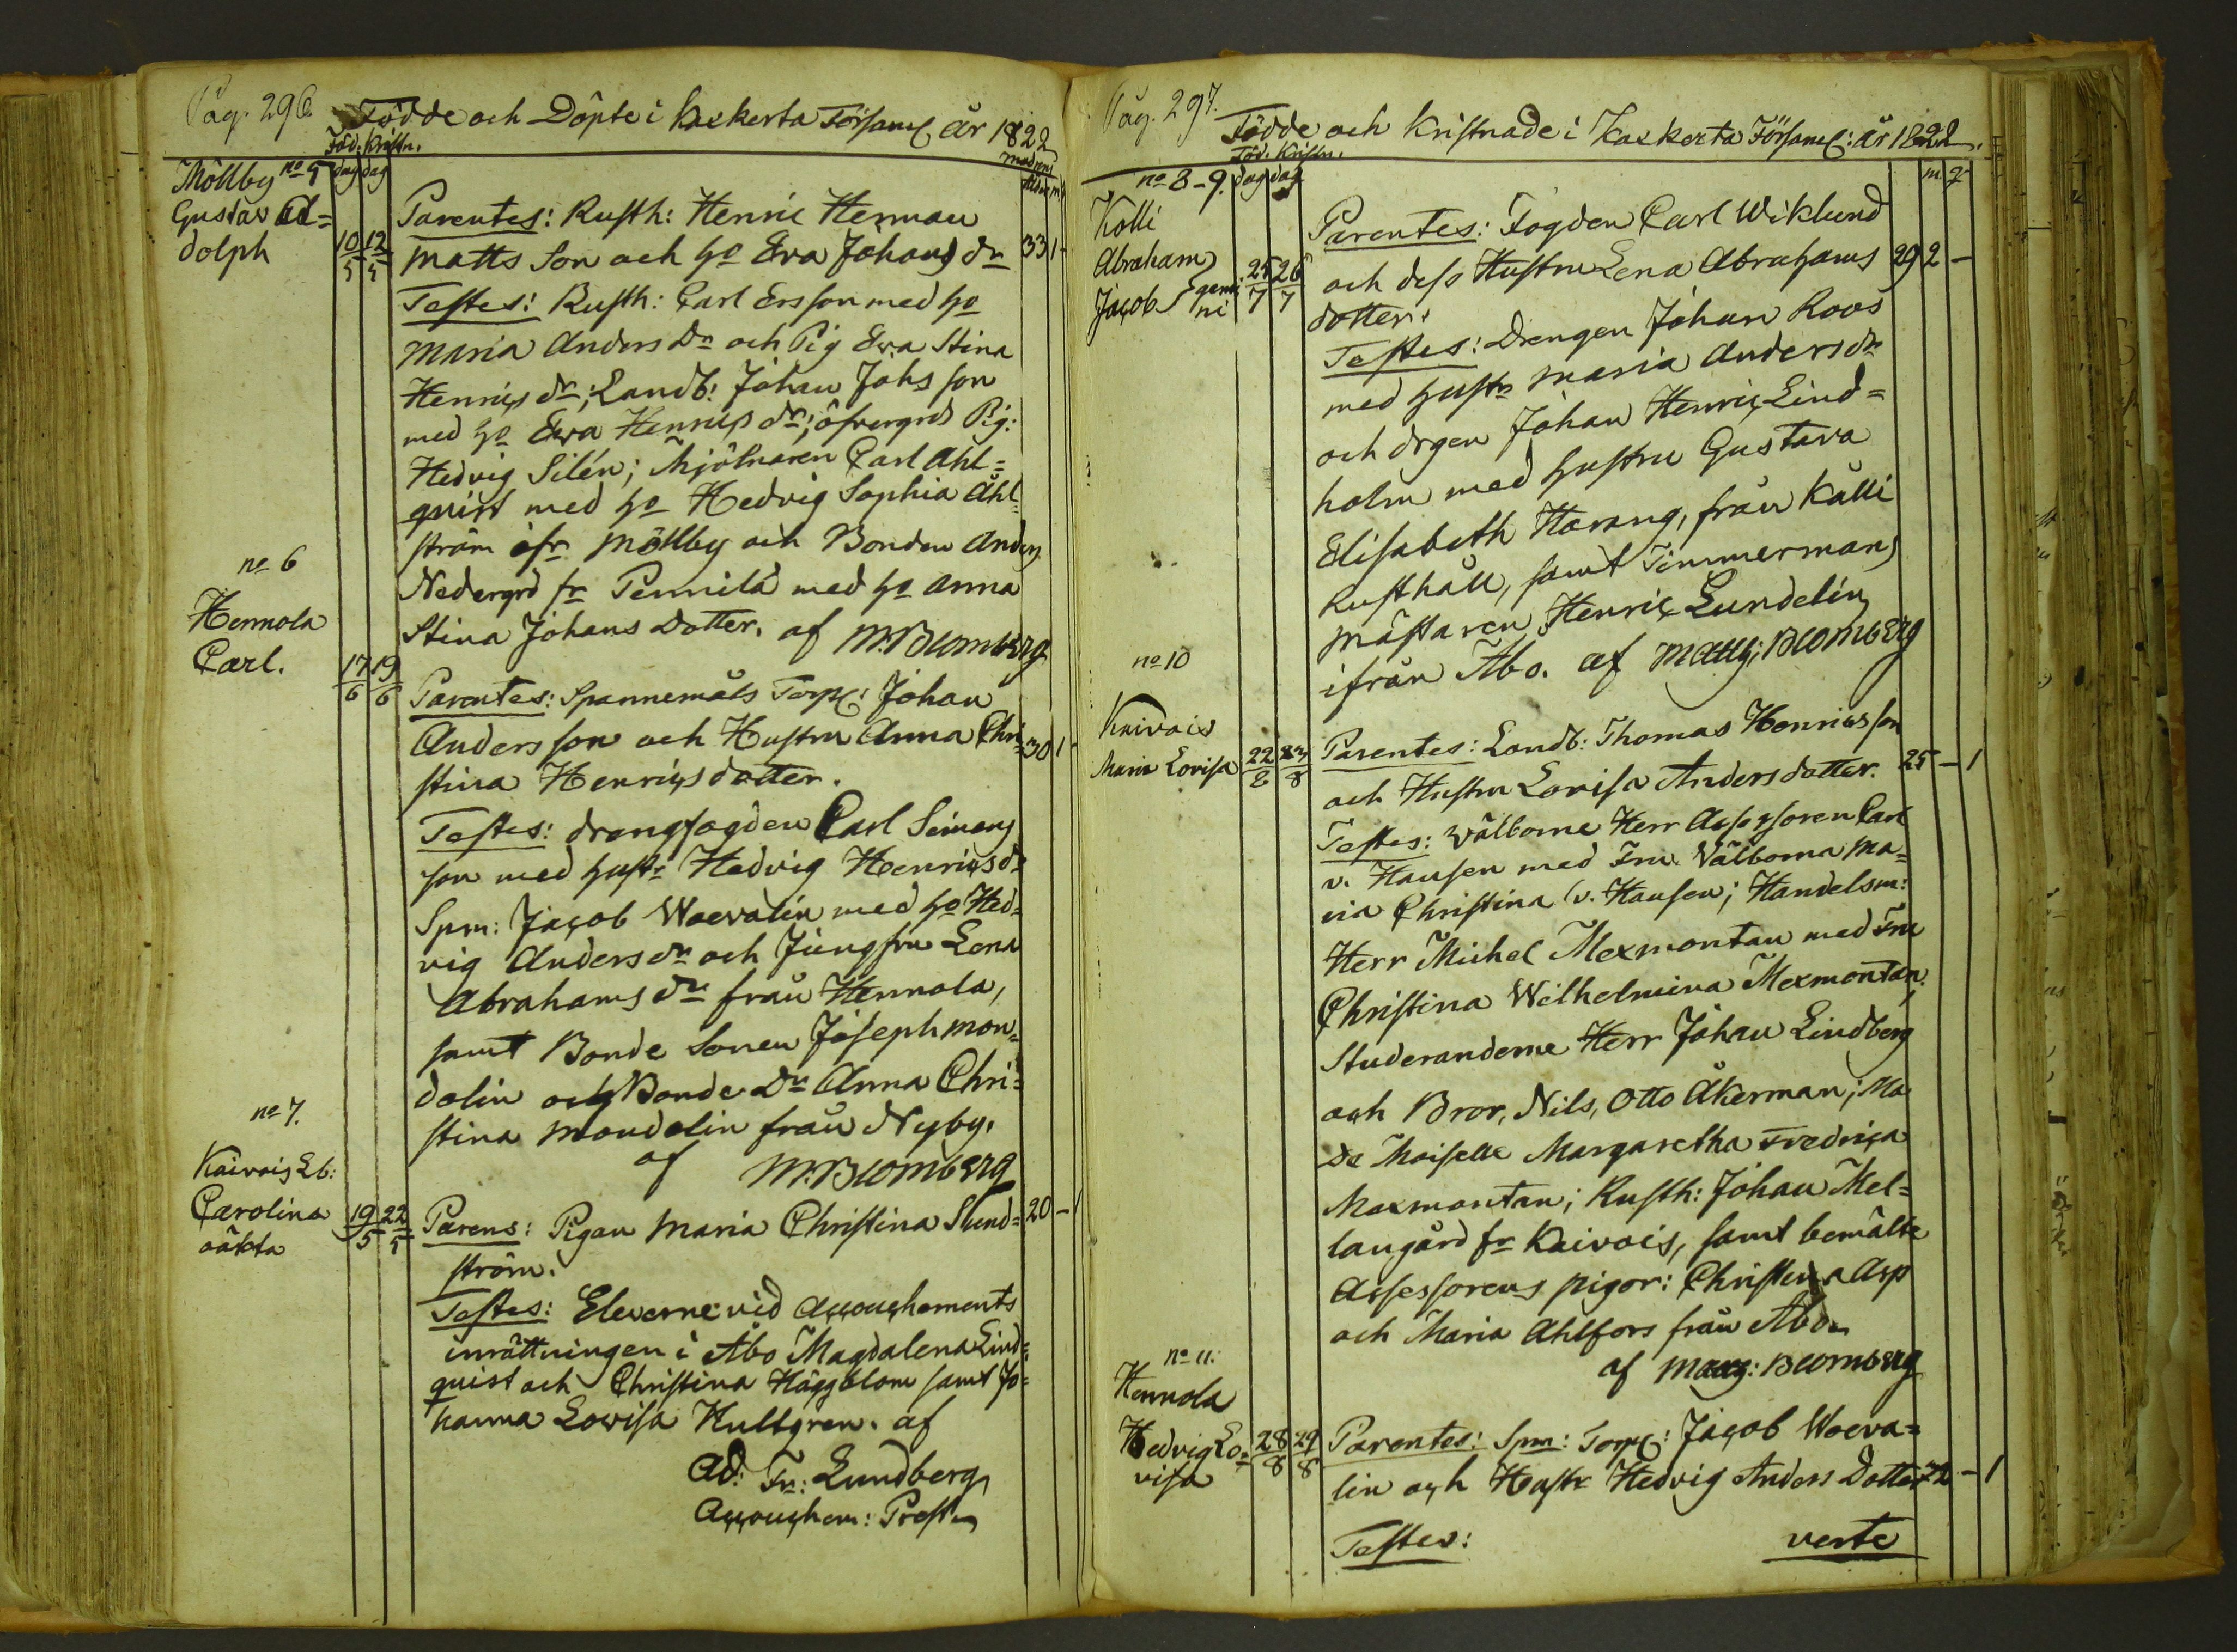 Pag. 296
Födde och Döpte i Kaskerta Församl. År 1822
Föd. Kristn.
dag dag
modrens
ålder
m. q.
Möllby no 5
Gustav Ad=
dolph
10/5 12/5
Parentes: Rusth: Henric Herman
Matts Son och ho Eva Johans dr 33 1 -
Testes: Rusth: Carl Ersson med ho
Maria Anders Dr och Pig Eva Stina
Henrics dr; Landb: Johan Johs son
med ho Ewa Henrics dr; öfvergrds Pig:
Hedvig Silén; Mjölnaren Carl Ahl=
quist med ho Hedvig Sophia Ahl=
ström ifr Möllby och Bonden Anders
Nedergrd fr Pennilä med ho Anna
Stina Johans Dotter. af M. Blomberg
no 6
Hennola
Carl.
17/6 19/6
Parentes: Spannemåls Torp: Johan
Andersson och Hustru Anna Chri= 30 1
stina Henricsdotter.
Testes: drangfogden Carl Simons
son med hustr Hedvig Henrics dr
Spm: Jacob Woevalin med ho Hed=
vig Anders dr och Jungfru Lena
Abrahams dr från Hennola,
samt Bonde Sonen Joseph Mon=
dolin och Bonde Dr Anna Chri=
stina Mondelin från Nyby.
af M. Blomberg
no 7.
Kaivois Lb:
Carolina
oäkta
19/5 22/5
Parens: Pigan Maria Christina Slund= 20 - 1
ström.
Testes: Eleverne vid Accouchements
inrättningen i Åbo Magdalena Lind=
quist och Christina Häggblom samt Jo=
hanna Lovisa Hultgren. af
Ad: Fr: Lundberg
Accouchem: Prest
Pag. 297.
Födde och Kristnade i Kaskerta Församl: År 1822.
Föd. Kristn.
no 8-9. dag dag
m. q.
Kolli
Abraham
Jacob } gemi
ni
25/7 26/7
Parentes: Fogden Carl Wiklund
och dess Hustru Lena Abrahams 29 2 -
dotter.
Testes: Drengen Johan Roos
med hustr Maria Anders dr
och drgen Johan Henric Lind=
holm med hustru Gustava
Elisabeth Harang, från Kålli
Rusthåll, samt Timmermans
mästaren Henric Lundelin
ifrån Åbo. af Matth: Blomberg
no 10
Kaivois
Maria Lovisa
22/8 23/8
Parentes: Landb: Thomas Henricsson
och Hustru Lovisa Anders dotter. 25 - 1
Testes: Välborne Herr Assessoren Carl
v. Hausen med Fru Välborna Ma=
ria Christina v. Hausen; Handelsm:
Herr Michel Mexmontan med Fru
Christina Wilhelmina Mexmontan;
Studeranderne Herr Johan Lindberg
och Bror, Nils, Otto Åkerman; Ma
De Moiselle Margaretha Fredrica
Mexmontan; Rusth: Johan Mel=
langård fr Kaivois, samt bemälte
Assessorens pigor: Christina Asp
och Maria Ahlfors från Åbo.
af Matth: Blomberg
no 11.
Hennola
Hedvig Lo=
visa
28/8 29/8
Parentes: Spm: Torp: Jacob Woeva=
lin och Hustr Hedvig Anders Dotter - 1
Testes: verte